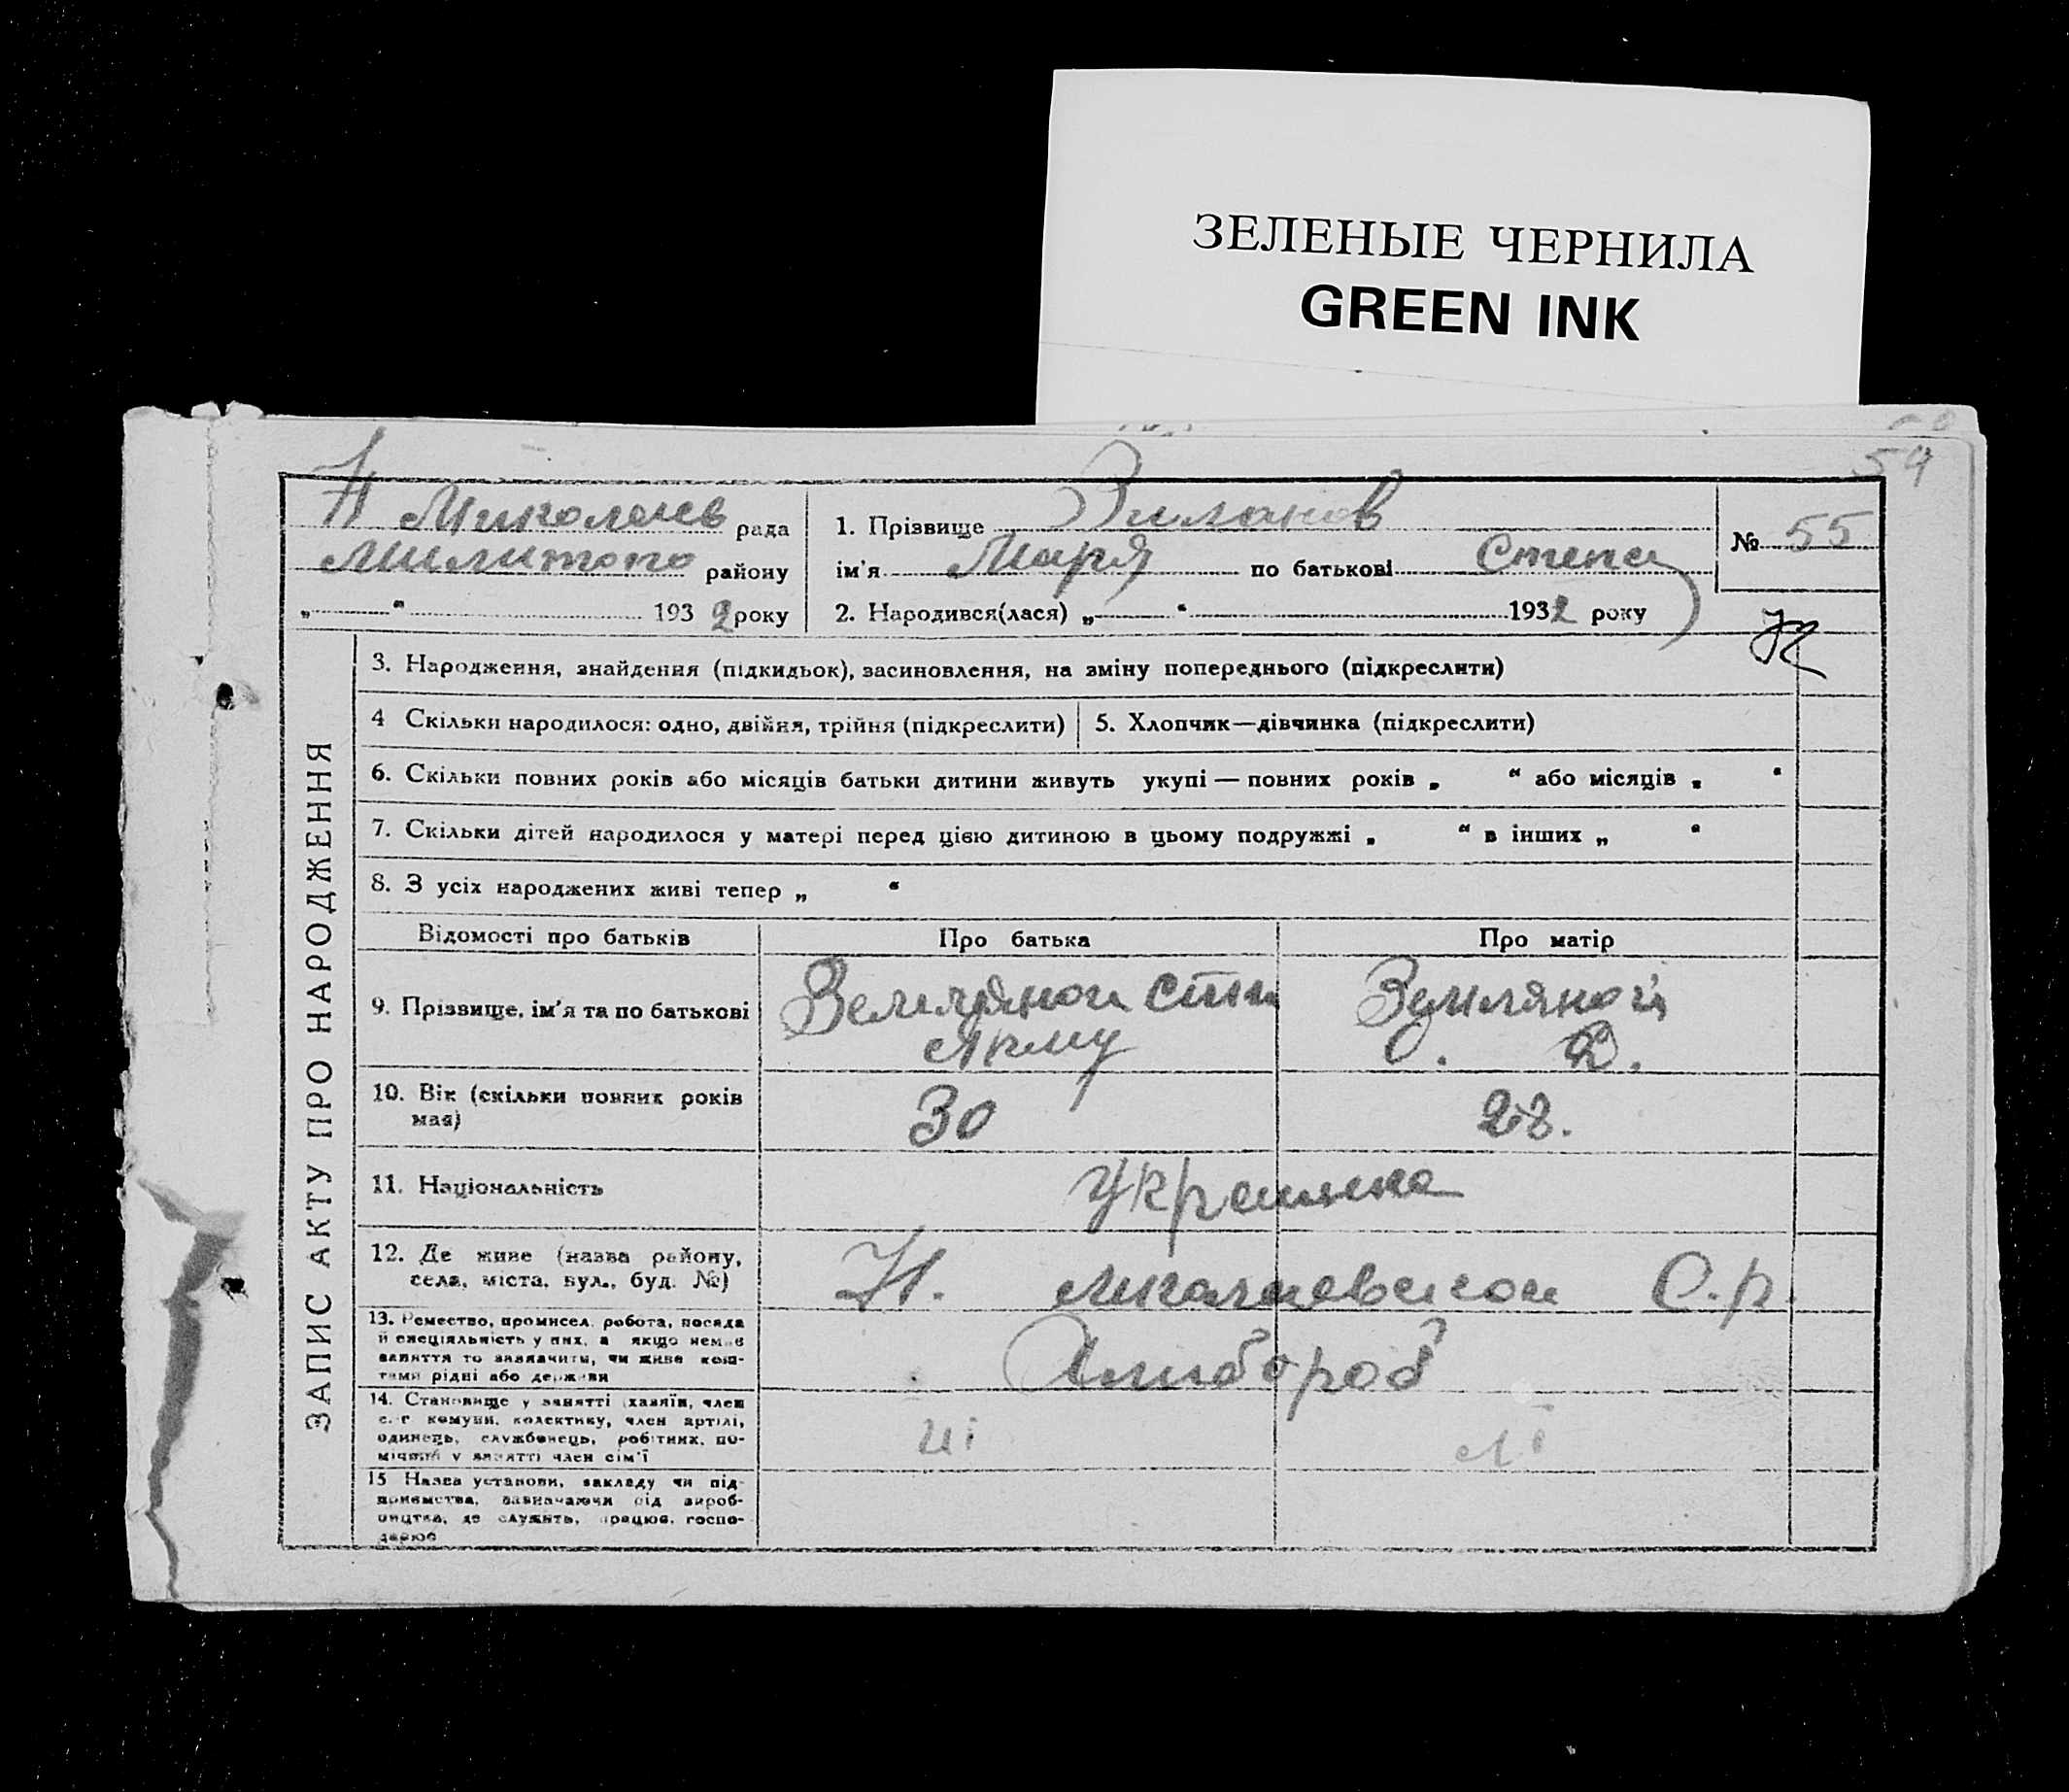 ЗЕЛЕНЫЕ ЧЕРНИЛА
GREEN INK
59
Н Миколаев рада
Милитопо району
„ “ 1932 року
1. Прізвище Зиланов
ім'я Маря по батькові Степа
2. Народився(лася) „ “ 1932 року
№ 55
ЗАПИС АКТУ ПРО НАРОДЖЕННЯ
3. Народження, знайдення (підкидьок), засиновлення, на зміну попереднього (підкреслити)
4 Скільки народилося: одно, двійня, трійня (підкреслити)
5. Хлопчик—дівчинка (підкреслити)
6. Скільки повних років або місяців батьки дитини живуть укупі — повних років „ “ або місяців „ “
7. Скільки дітей народилося у матері перед цією дитиною в цьому подружжі „ “ в інших „ “
8. З усіх народжених живі тепер „ “
Відомості про батьків Про батька Про матір
9. Прізвище, ім'я та по батькові
Земляной Степ
Якиму
Земляной
О. Д.
10. Вік (скільки повних років має)
30 28.
11. Національність
Украинка
12. Де живе (назва району,
села, міста, вул., буд. №)
Н. С.р.
13. Ремество, промисел, робота, посада
й спеціяльність у них, а якщо немає
заняття то зазначити, чи живе кош-
тами рідні або держави
Хлибороб
14. Становище у занятті (хазяїн, член
с.-г комуни, колективу, член артілі,
одинець, службовець, робітник, по-
мічний у занятті член сім'ї
15 Назва установи, закладу чи під-
приємства, зазначаючи рід вироб-
ництва, де служить, працює, госпо-
дарює